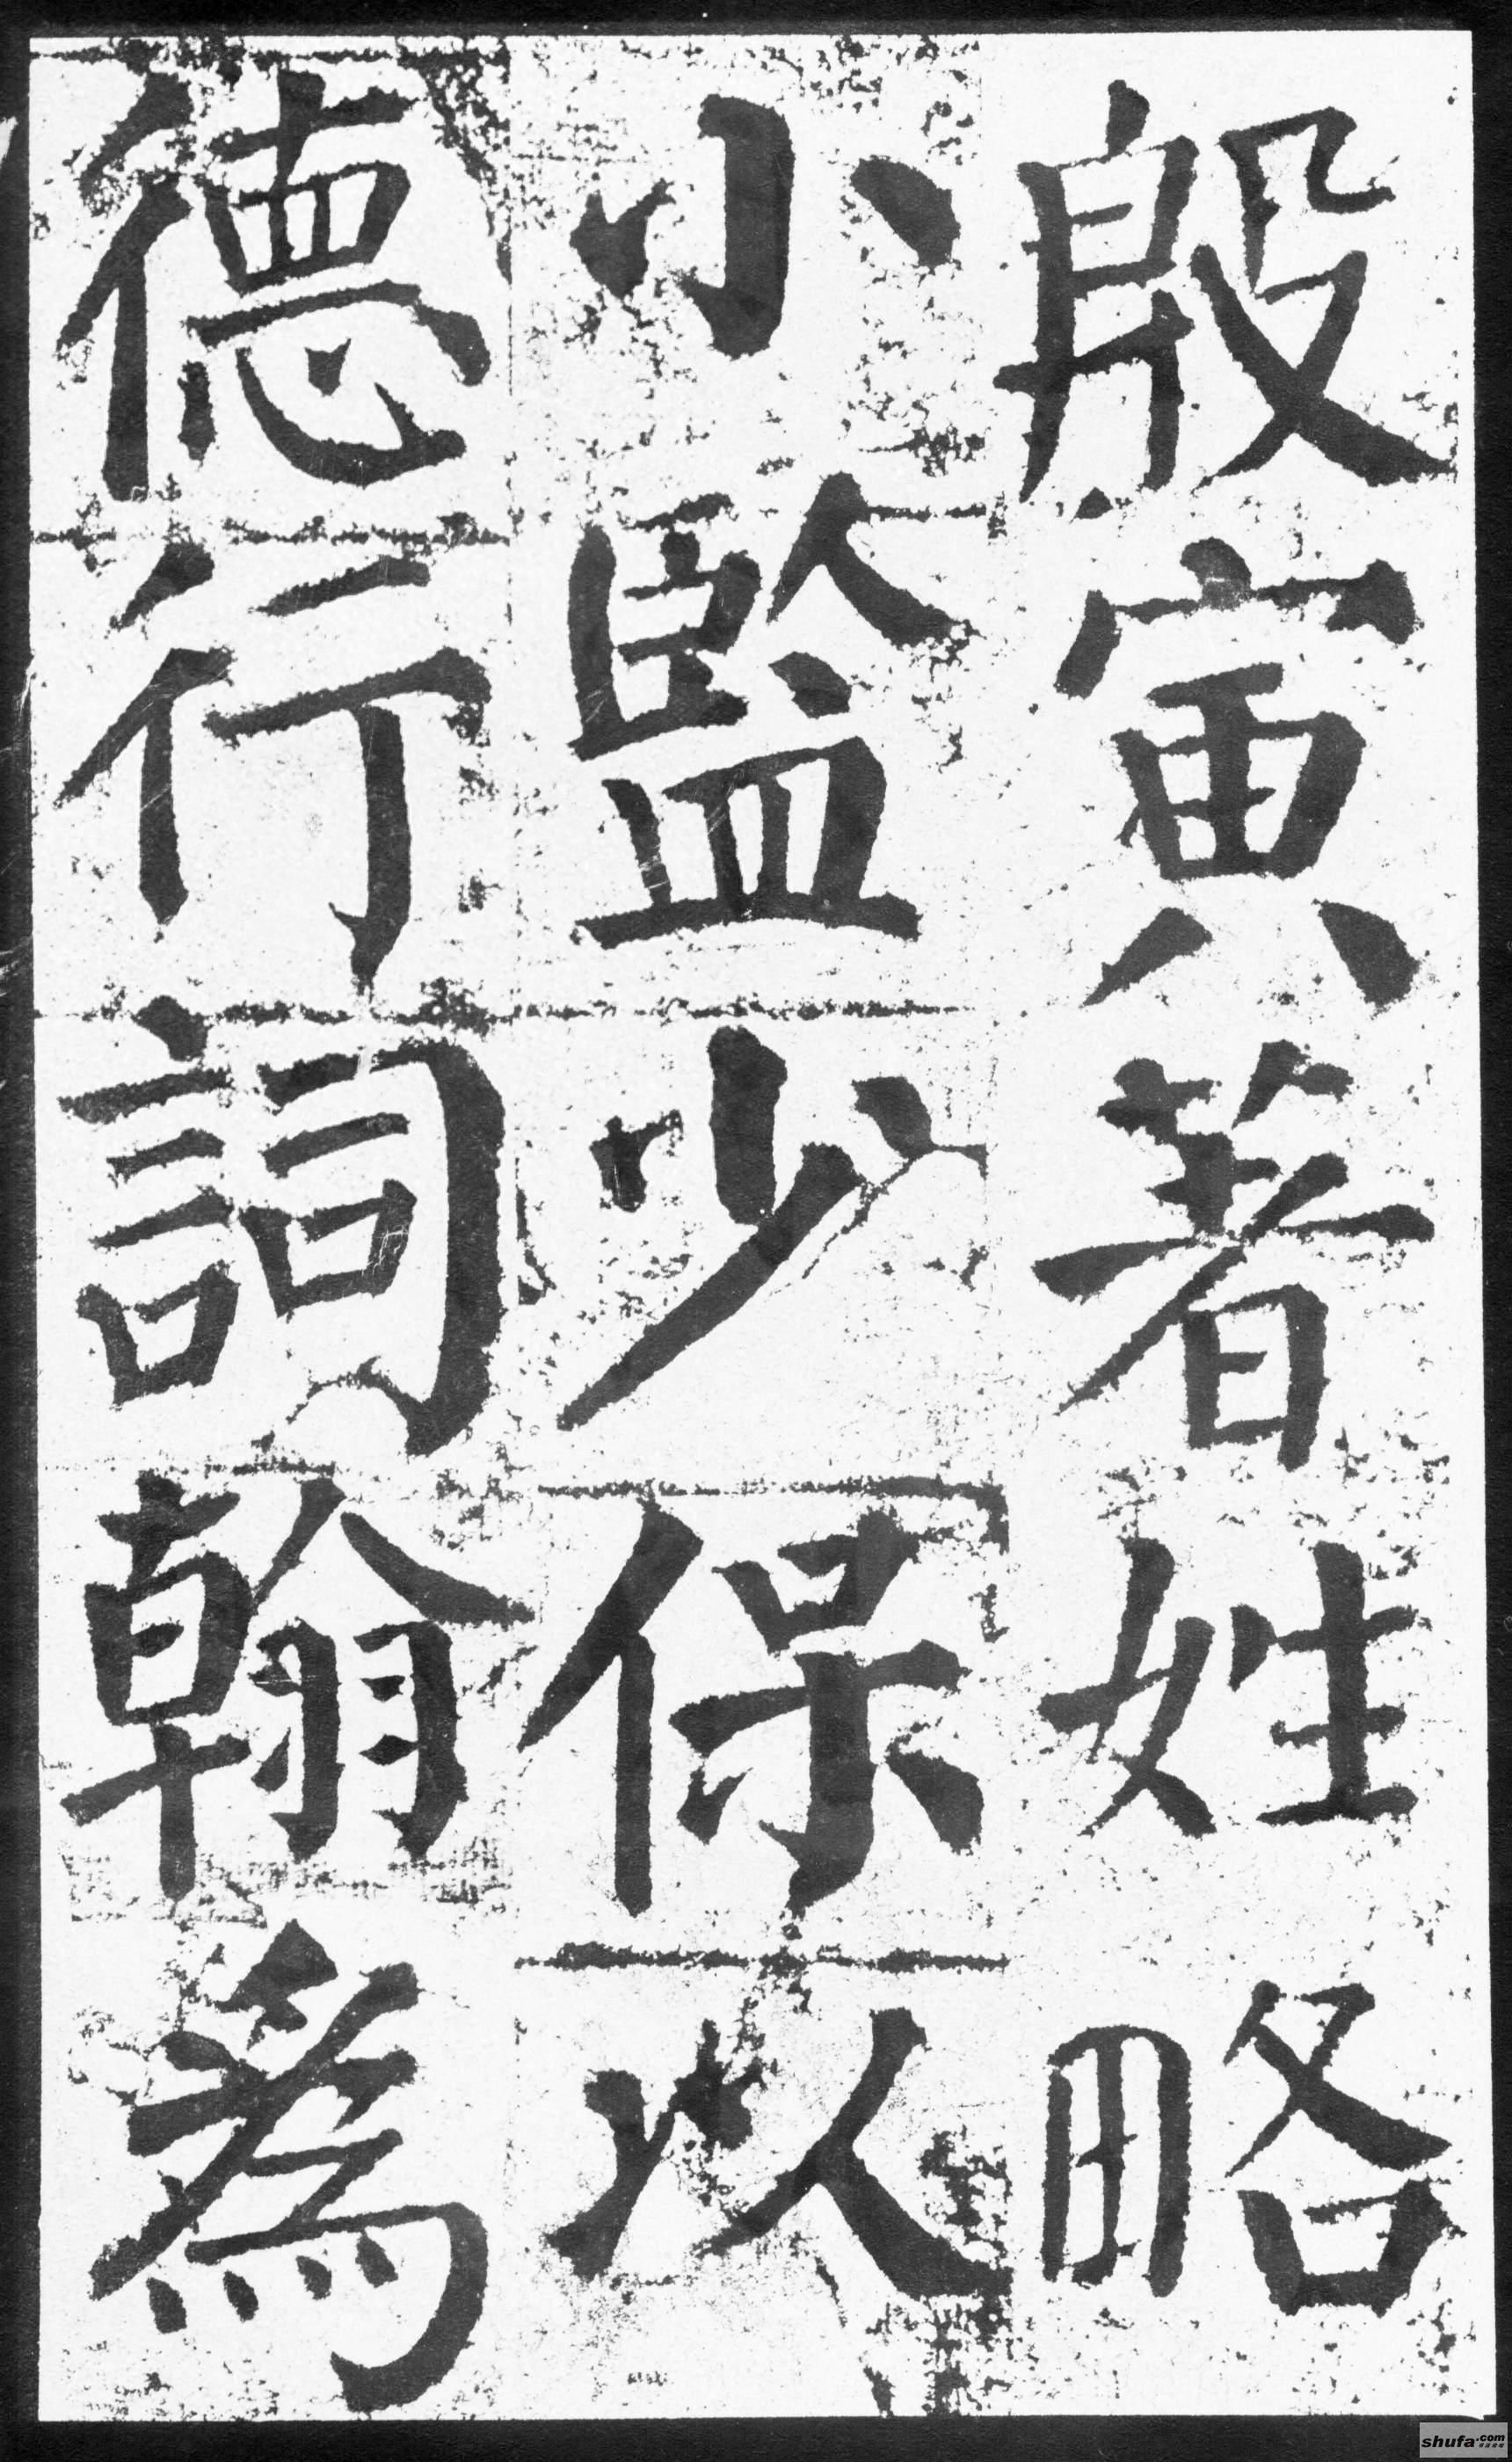 殷寅著姓略
小監少保以
德行詞翰為
shufa.com